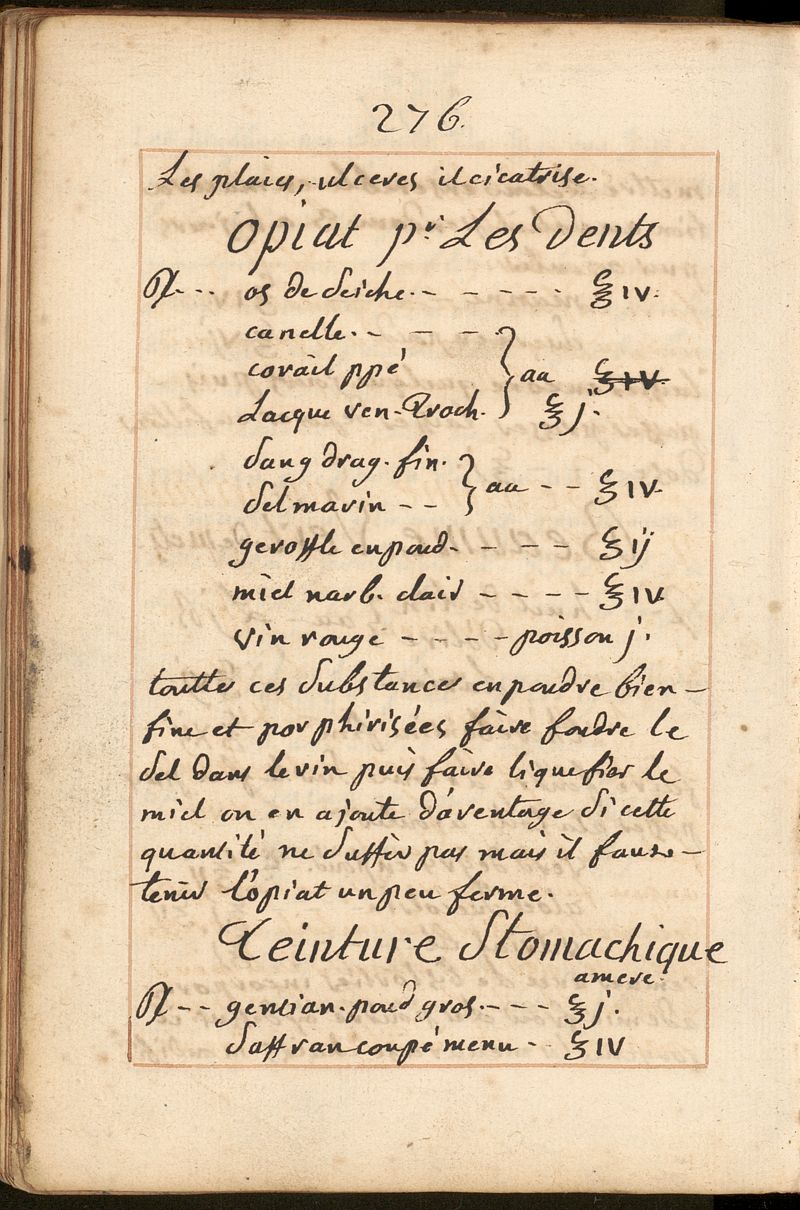 276.
Les plaies, ulceres il cicatrise.
Opiat pr Les Dents
℞ - - os de seiche - - - - - ℥ IV.
canelle - - - -
corail ppé } aa ℥ IV.
Lacque ven. Troch. ℥ j.
sang drag. fin.
sel marin - - } aa - - ℥ IV.
geroffle en poud. - - - - ℥ ij
miel narb. clair - - - - ℥ IV
vin rouge - - - - poisson j.
touttes ces substances en poudre bien -
fine et porphirisées faire fondre le
sel dans le vin puis faire liquefier le
miel on en ajoute d'aventage si cette
quantité ne suffir pas mais il faut -
tenir l'opiat un peu ferme.
Teinture Stomachique
amere.
℞ - - gentian. poud gros. - - - ℥ j.
saffran coupé menu - ℥ IV